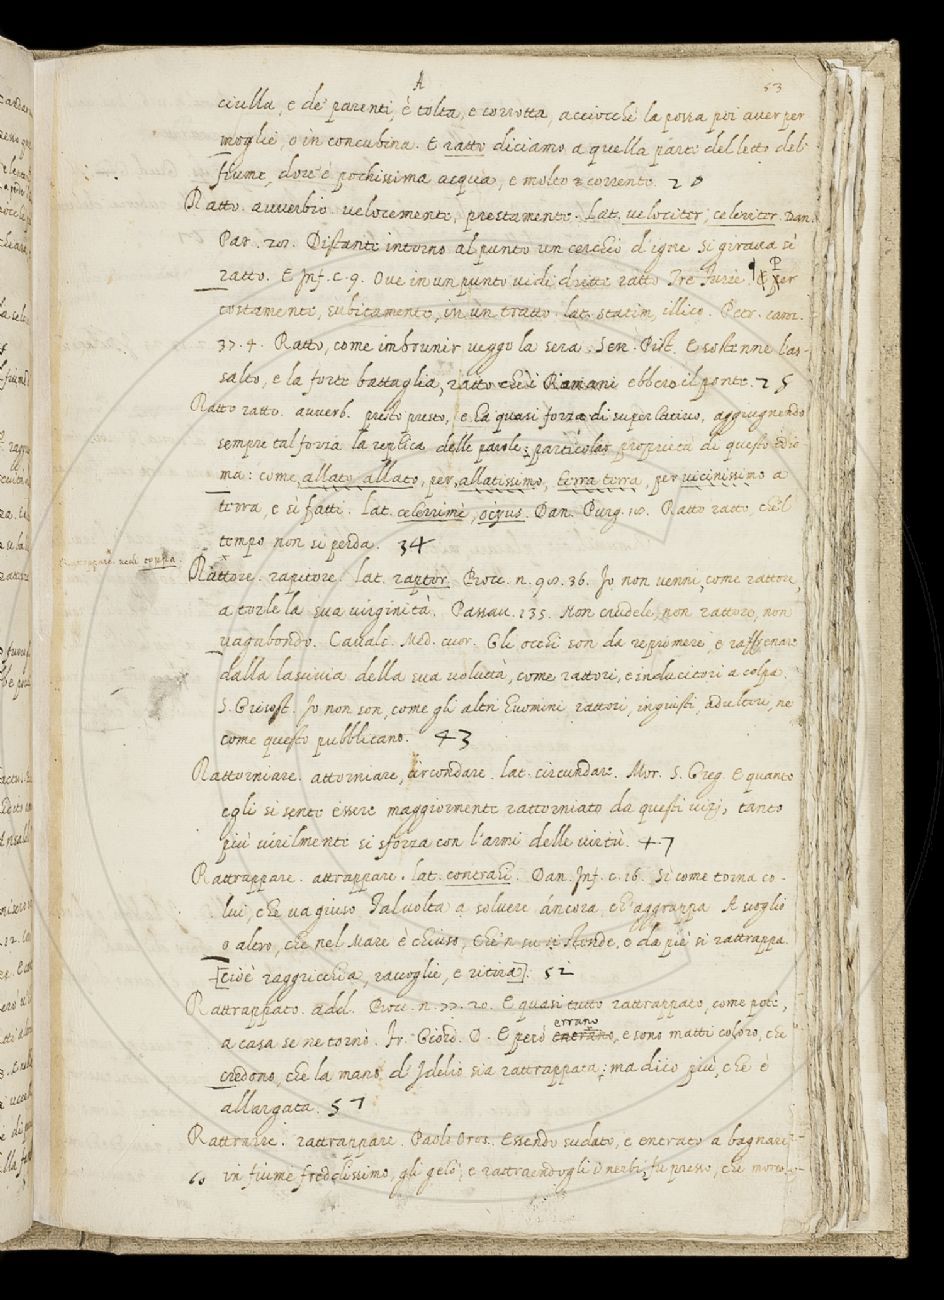 A
53
ciulla, e de' parenti, è tolta, e corrotta, acciocchè la possa poi aver per
moglie, o in concubina. E ratto diciamo a quella parte del letto del
fiume, dove è pochissima acqua, e molto corrente. 20
Ratto. avverbio. velocemente, prestamente. Lat. velociter, celeriter. Dan.
Par. 28. Distante intorno al punto un cerchio d'igne Si girava sì
ratto. E Inf. c. 9. Ove in un punto vidi dritte ratto Tre Furie. E per
tostamente, subitamente, in un tratto. lat. statim, illico. Petr. canz.
37. 4. Ratto, come imbrunir veggo la sera. Sen. Pist. E sostenne l'as-
salto, e la forte battaglia, ratto che i Romani ebbero il ponte. 25
Ratto ratto. avverb. presto presto, e ha quasi forza di superlativo, aggiugnendo
sempre tal forza la replica delle parole: particolar proprietà di questo idio
ma: come, allato allato, per, allatissimo, terra terra, per vicinissimo a
terra, e sì fatti. Lat. celerrimè, ocyus. Dan. Purg. 18. Ratto ratto, che'l
tempo non si perda. 34
Rattore. rapitore. Lat. raptor. Bocc. n. 98. 36. Io non venni, come rattore,
a torle la sua virginità. Passav. 135. Non crudele, non rattore, non
vagabondo. Cavalc. Med. cuor. Gli occhi son da reprimere, e raffrenare
dalla lascivia della sua voluttà, come rattori, e inducitori a colpa.
S. Grisost. Io non son, come gli altri huomini rattori, ingiusti, adulteri, ne
come questo pubblicano. 43
Rattorniare. attorniare, circondare. lat. circundare. Mor. S. Greg. E quanto
egli si sente essere maggiormente rattorniato da questi vizj, tanto
più virilmente si sforza con l'armi delle virtù. 47
Rattrappare. attrappare. lat. contrahi. Dan. Inf. c. 16. Sì come torna co-
lui, che va giuso Talvolta a solvere áncora, ch'aggrappa A scoglio
o altro, che nel mare è chiuso, Che'n su si stende, e da piè si rattrappa.
[Cioè raggricchia, raccoglie, e ritira]. 52
Rattrappato. add. Bocc. n. 77. 20. E quasi tutto rattrappato, come potè,
a casa se ne tornò. Fr. Giord. D. E però errano, e sono matti coloro, che
credono, che la mano d'Idelio sia rattrappata; ma dico più, che è
allargata. 57
Rattrarre. rattrappare. Paolo Oros. Essendo sudato, e entrato a bagnare
60 in fiume freddissimo, gli gelò, e rattraendogli i nerbi, fu presso, che morto.